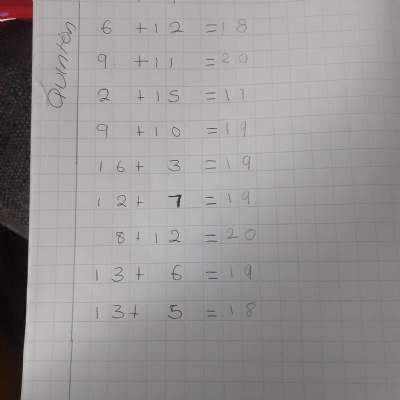 Quinten
6 + 12 = 18
9 + 11 = 20
2 + 15 = 17
9 + 10 = 19
16 + 3 = 19
12 + 7 = 19
8 + 12 = 20
13 + 6 = 19
13 + 5 = 18